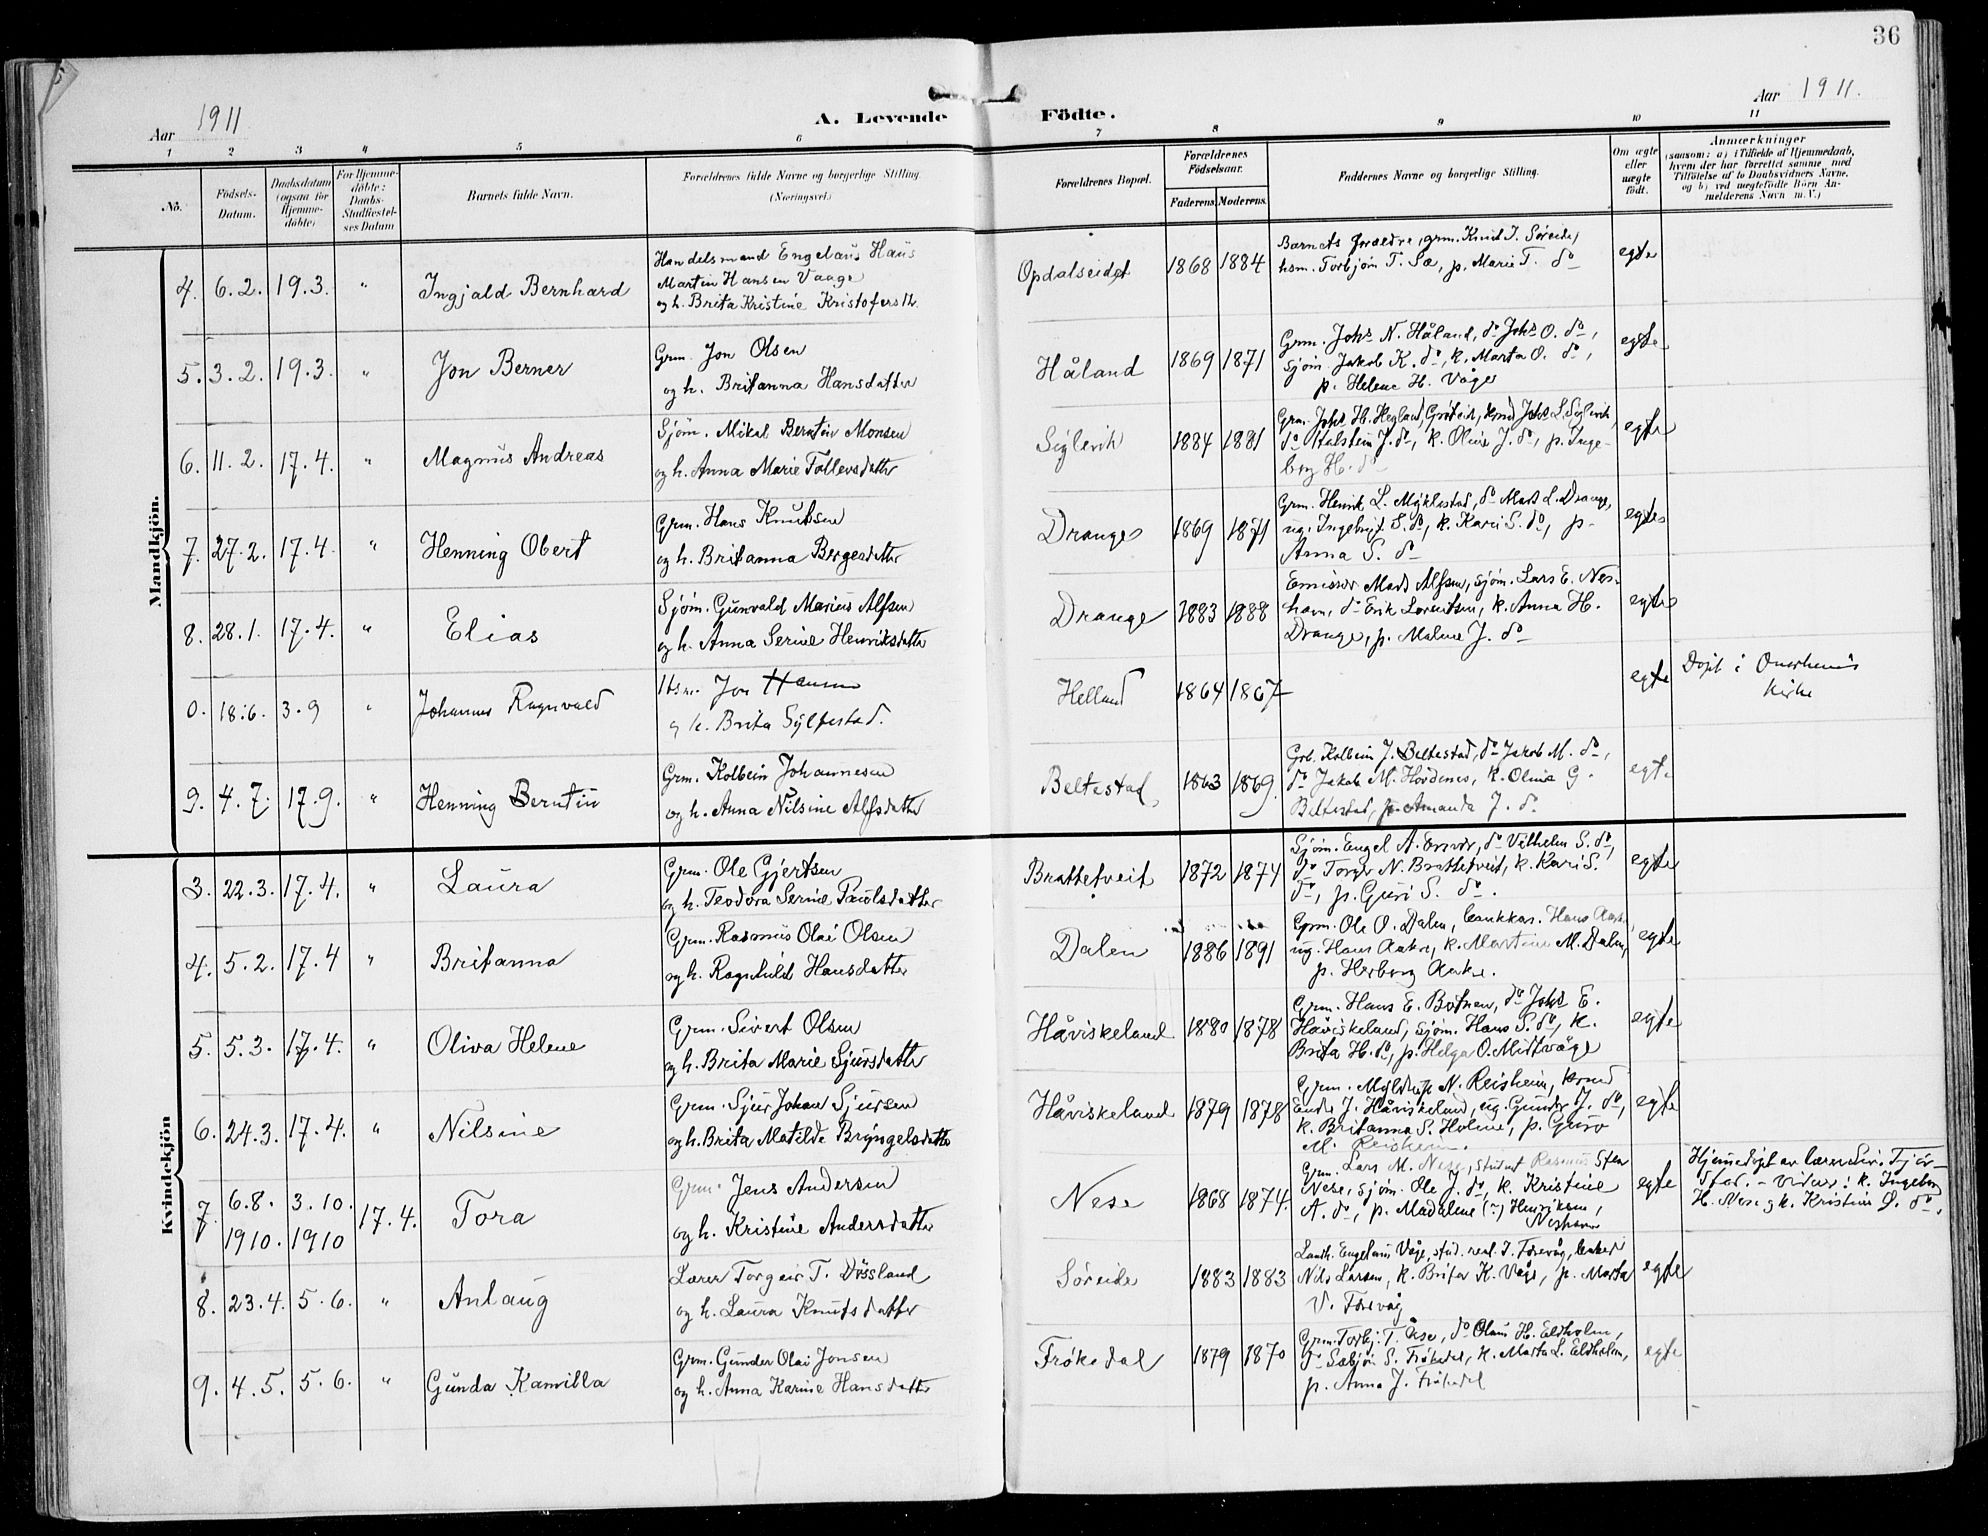 36
Aar 1911
A. Levende Födte.
Aar 1911.
1 2 3 4 5 6 7 8 9 10 11
No. Födsels-Datum. Daabsdatum (ogsaa for Hjemmedöbte) For Hjemmedöbte: Daabs-Stadfæstelses Datum Barnets fulde Navn. Forældrenes fulde Navne og borgerlige Stilling. (Næringsvei.) Forældrenes Bopæl. Forældrenes Födselsaar. Faderens. Moderens. Faddernes Navne og borgerlige Stilling. Om ægte eller uægte födt. Anmærkninger (saasom: a) i Tilfælde af Hjemmedaab, hvem der har forrettet samme med Tilföielse af to Daabsvidners Navne, og b) ved uægtefödte Börn Anmelderens Navn m. V.)
Mandkjön.
4. 6.2. 19.3. " Ingjald Bernhard
Handelsmand Engelaus Haus
Martin Hansen Vaage
og h. Brita Kristine Kristofersd.
Opdalseidet 1868 1884
Barnets forældre, grm. Knud I. Søreide,
hsm. Torbjørn T. Sæ, p. Marie T. do
egte
5. 3.2. 19.3. " Jon Berner
Grm. Jon Olsen
og h. Britanna Hansdatter
Håland 1869 1871
Grm. Johs N. Håland, do Johs O. do,
sjøm. Jakob K. do, k. Marta O. do,
p. Helene H. Våge
egte
6. 11.2. 17.4. " Magnus Andreas
Sjøm. Mikal Berntin Monsen
og h. Anna Marie Tollevsdatter
Siglevik 1884 1881
Grm. Johs H. Hegland, Johs L. Siglevik,
do Halstein J. do, k. Oline J. do, p. Inge-
borg H. do
egte
7. 27.2. 17.4. " Henning Obert
Grm. Hans Knutsen
og h. Britanna Børgesdatter
Drange 1869 1871
Grm. Henrik L. Myklestad, do Mads L. Drange,
ug. S. do, k. Kari S. do, p.
Anna S. do
egte
8. 28.1. 17.4. " Elias
Sjøm. Gunvald Marius Alfsen
og h. Anna Serine Henriksdatter
Drange 1883 1888
Emissær Mads Alfsen, sjøm. Lars E. Nes-
havn, do Erik Lorentsen, k. Anna H.
Drange, p. Malene J. do
egte
0. 18.6. 3.9 " Johannes Ragnvald
Hsm. Jon Hansen
og h. Brita Sylfestad.
Helland 1864 1867
egte
Døpt i Onarheims
kirke
9. 4.7. 17.9. " Henning Berntin
Grm. Kolbein Johannesen
og h. Anna Nilsine Alfsdatter
Beltestad, 1863 1869.
Grb. Kolbein J. Beltestad, do Jakob M. do,
do Jakob M. Hovdenes, k. Olina G.
Beltestad, p. Amanda J. do
egte
Kvindekjön
3. 22.3. 17.4. " Laura
Grm. Ole Gjertsen
og h. Teodora Serine Paulsdatter
Brattetveit 1872 1874
Sjøm. Engel A. , do Vilhelm S. do,
do Torger N. Brattetveit, k. Kari S.
do, p. Guri S. do.
egte
4. 5.2. 17.4 " Britanna
Grm. Rasmus Olai Olsen
og h. Ragnhild Hansdatter
Dalen 1886 1891
Grm. Ole O. Dalen, bankkas. Hans Aake,
ug. Hans Aake, k. Martine M. Dalen,
p. Herborg Aake.
egte
5. 5.3. 17.4. " Oliva Helene
Grm. Sivert Olsen
og h. Brita Marie Sjursdatter
Håviskeland 1880 1878
Grm. Hans E. Botnen, do Johs E.
Håviskeland, sjøm. Hans S. do, k.
Brita H. do, p. Helga O. Midtvåge
egte
6. 24.3. 17.4. " Nilsine
Grm. Sjur Johan Sjursen
og h. Brita Matilde Bryngelsdatter
Håviskeland 1879 1878
Grm. N. Reisheim,
J. Håviskeland, ug. Gunder J. do,
k. Britanna S. Holme, p. Guro
M. Reisheim.
egte
7 6.8. 1910. 3.10. 1910 17.4. Tora
Grm. Jens Andersen
og h. Kristine Andersdatter
Nese 1868 1874.
Grm. Lars M. Nese, student Rasmus Sten
Nese, sjøm. Ole J. do, k. Kristine
A. do, p. Madalene (?) Henriksen,
Neshavn
egte
Hjemedøpt av lærer Siv. Fjør-
stad. – vidner: k. Ingeborg
H. Nese og k. Kristine Ø. do.
8. 23.4. 5.6. " Anlaug
Lærer Torgeir T. Døssland
og h. Laura Knutsdatter
Søreide 1883 1883
Landh. Engelaus Våge, stud. real. T. Forevåg, lærer
Nils Larsen, k. Brita K. Våge, p. Marta
V. Forevåg
egte
9. 4.5. 5.6. " Gunda Kamilla
Grm. Gunder Olai Jonsen
og h. Anna Karine Hansdatter
Frøkedal 1879 1870
Grm. Torbj. T. Åse, do Olaus H. Eldholm,
do Sæbjørn S. Frøkedal, k. Marta L. Eldholm,
p. Anna J. Frøkedal
egte